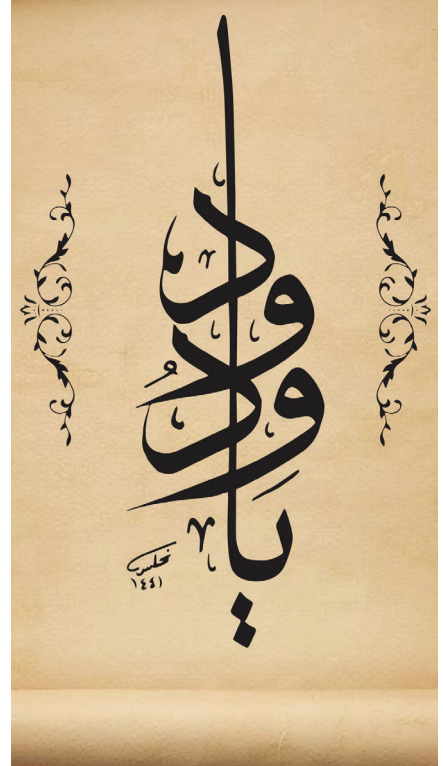 يَا وَدُود
١٤٤١